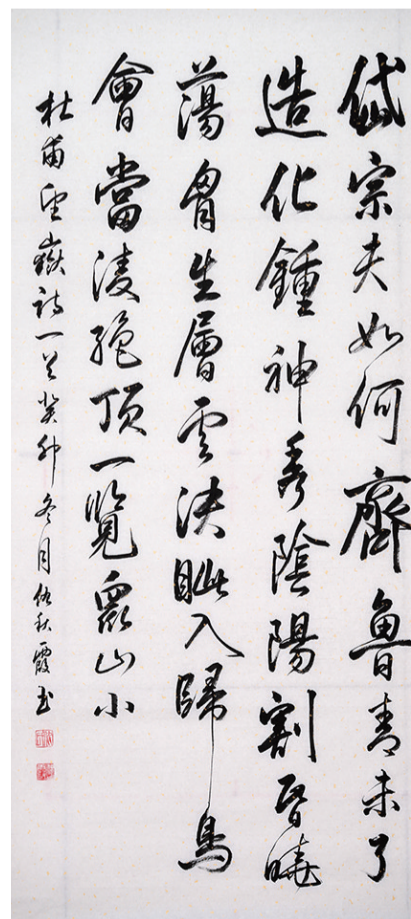 岱宗夫如何齊魯青未了
造化鍾神秀陰陽割昏曉
蕩胷生層雲决眦入歸鳥
會當凌絕頂一覽衆山小
杜甫望嶽詩一首癸卯冬月伍秋霞书